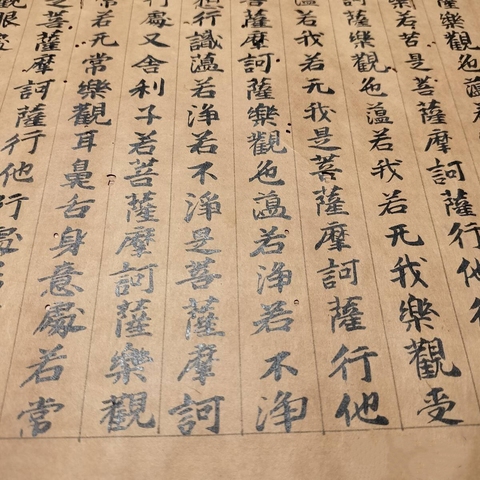 薩樂觀色蘊
樂若苦是菩薩摩訶薩行他行
訶薩樂觀色蘊若我若无我樂觀受
蘊若我若无我是菩薩摩訶薩行他
菩薩摩訶薩樂觀色蘊若淨若不淨
他行識蘊若淨若不淨是菩薩摩訶
行處又舍利子若菩薩摩訶薩樂觀
常若无常樂觀耳鼻舌身意處若常
是菩薩摩訶薩行他行處
觀眼處